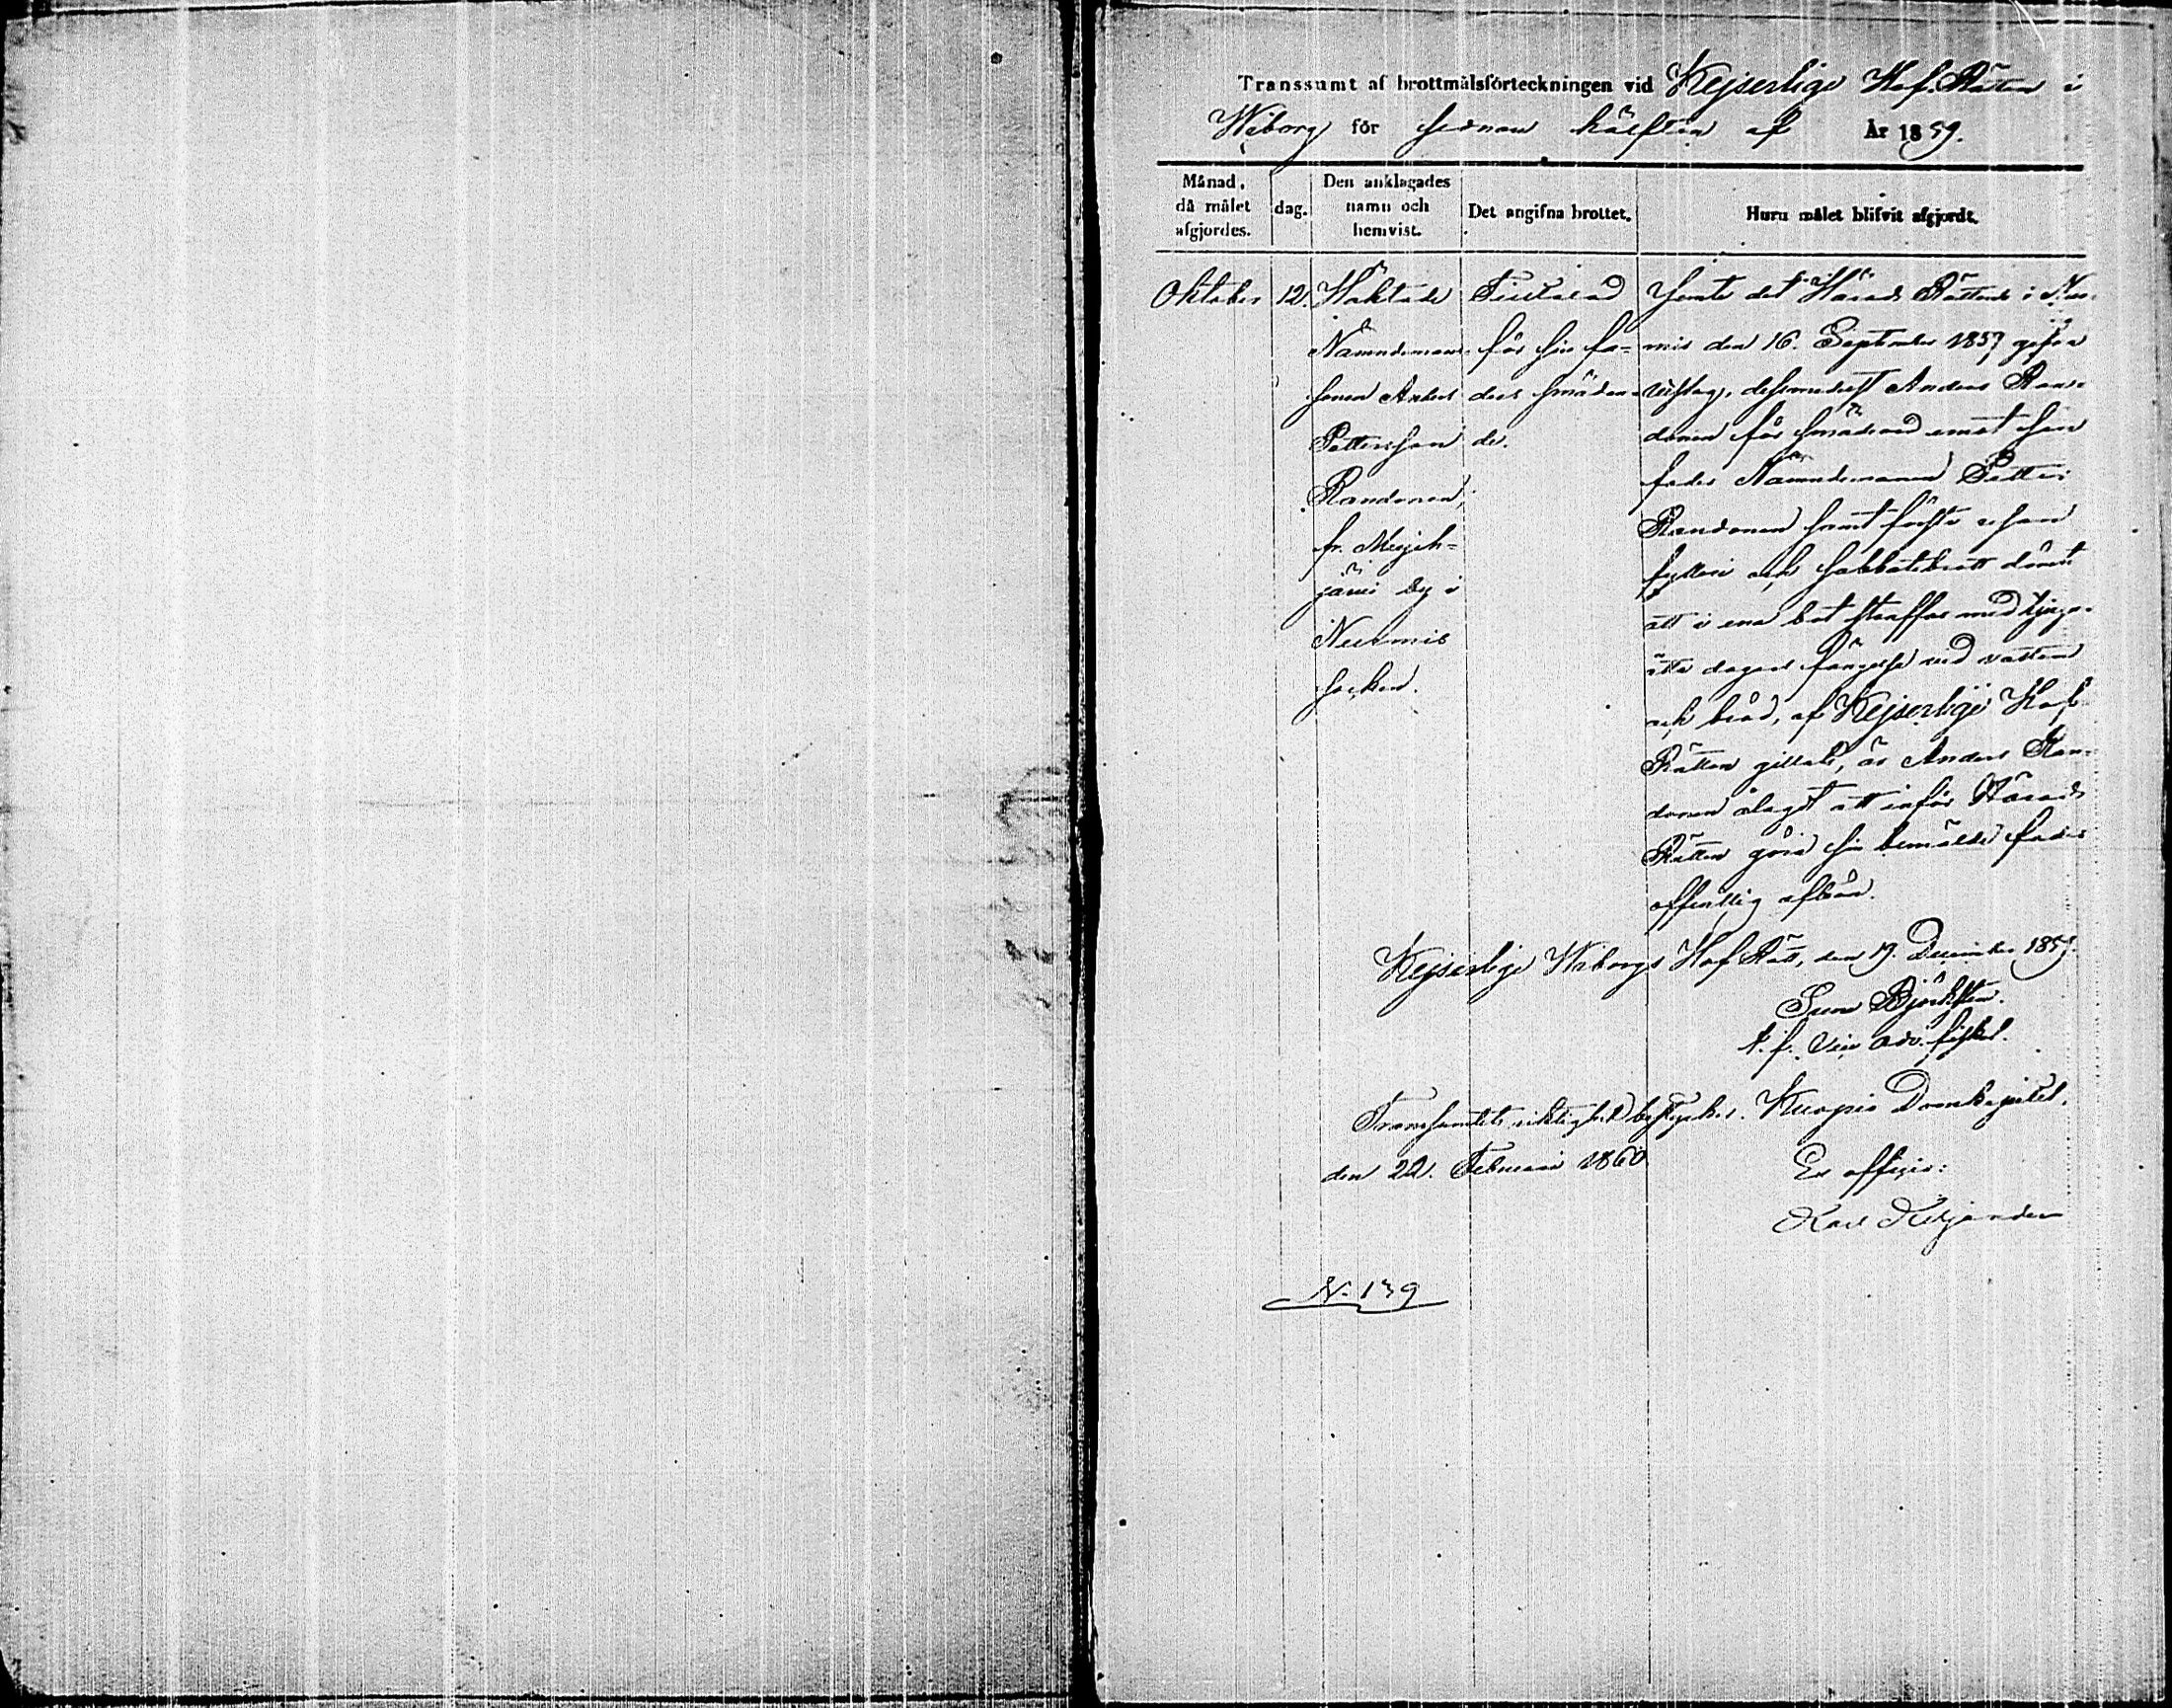 Transsumt af brottmålsförteckningen vid Kejserliga Hof Rätten i
Wiborg för sednare hälften af År 1859.
Månad, då målet afgjordes.
dag.
Den anklagades namn och hemvist.
Det angifna brottet.
Huru målet blifvit afgjordt.
Oktober
12.
Häktade
Nämndemans-
sonen Anders
Pettersson
Randonen,
fr.
järvi by i
Nurmis
socken.
för sin fa-
ders smädan-
de.
Jemte det Härads Rättens i Nur-
mis den 16. September 1859 gifna
utslag, derigenom Anders Ran-
donen för smädeord emot sin
fader Nämndemannen Petter
Randonen samt första resan
fylleri och sabbatsbrott dömt
att i ena bot straffas med tjugo-
åtta dagars fängelse vid vatten
och bröd, af Kejserliga Hof
Rätten gillats, är Anders Ran-
donen ålagd att inför Härads
Rätten göra sin bemälde fader
offentlig afbön.
Kejserliga Wiborgs Hof Rätt, den 19. December 1859.
Björksten.
t. f. Vice Adv. fiskal.
Transsumtets riktighet bestyrker. Kuopio Domkapitel,
den 22. Februari 1860
Ex officio:
Karl Kiljander
N. 139